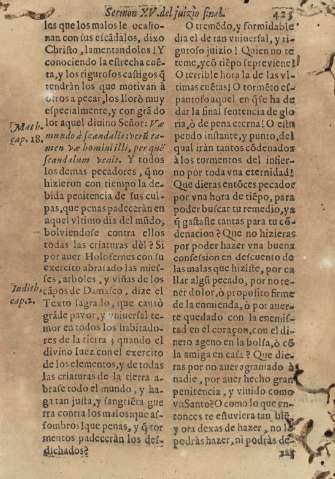 Sermon XV. del juizio final. 423
las que los malos le ocasio-
nan con sus escãdalos, dixo
Christo, lamentandolos! Y
conociendo la estrecha cuẽ-
ta, y los rigurosos castigos q̃
tendràn los que motivan à
otros a pecar, los llorò muy
especialmente, y con grã do
Math. cap. 18.
los aquel divino Señor: Væ
mundo à scandalis: verũ ta-
men væ homini illi, per quẽ
scandalum venit. Y todos
los demas pecadores, q̃ no
hizieron con tiempo la de-
bida penitencia de sus cul-
pas, que penas padeceràn en
aquel vltimo dia del mũdo,
bolviendose contra ellos
todas las criaturas dèl? Si
por auer Holofernes con su
exercito abrasado las mies-
ses, arboles, y viñas de los
Iudith, cap. 2.
cãpos de Damasco, dize el
Texto sagrado, que causò
grãde pavor, y vniversal te-
mor en todos los habitado-
res de la tierra; quando el
divino Iuez con el exercito
de los elementos, y de todas
las criaturas de la tierra a-
brase todo el mundo, y ha-
ga tan justa, y sangriẽta gue
rra contra los malos: que as-
sombros! que penas, y q̃ tor
mentos padeceràn los des-
dichados?
O tremẽdo, y formidable
dia el de tan vniversal, y ri-
guroso juizio! Quien no te
teme, y cõ tiẽpo se previene!
O terrible hora la de las vl-
timas cuẽtas! O tormẽto es-
pantoso aquel en q̃ se ha de
dar la final sentencia de glo
ria, ò de pena eterna! O estu
pendo instante, y punto, del
qual iràn tantos cõdenados
à los tormentos del infier-
no por toda vna eternidad!
Que dieras entõces pecador
por vna hora de tiẽpo, para
poder buscar tu remedio, ya
q̃ gastaste tantas para tu cõ-
denacion? Que no hizieras
por poder hazer vna buena
confession en descuento de
las malas que hiziste, por ca
llar algũ pecado, por no te-
ner dolor, ò proposito firme
de la enmienda, ò por auer-
te quedado con la enemis-
tad en el coraçon, con el di-
nero ageno en la bolsa, ò cõ
la amiga en casa? Que die-
ras por no auer agraviado à
nadie, por auer hecho gran
penitencia, y viuido como
vn Santo? O como lo que en-
tonces te estuviera tan biẽ,
y ora dexas de hazer, no lo
podràs hazer, ni podràs de-